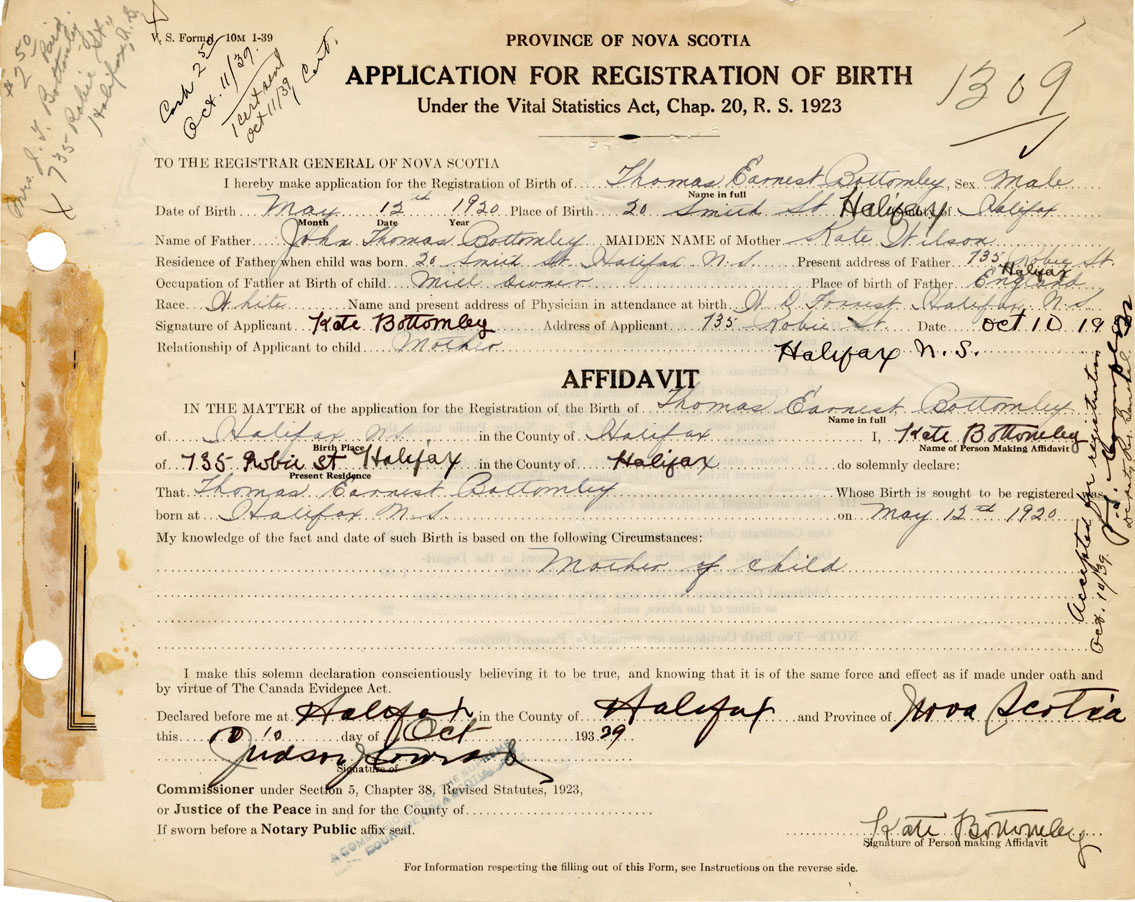 Mrs. J. T. Bottomley
735 Robie St.
Halifax, N.S.
$2.50 Paid
V. S. Form 10M 1-39
Cash 2.50
Oct. 11/39.
1 cert sent
Oct 11/39
Cert.
PROVINCE OF NOVA SCOTIA
APPLICATION FOR REGISTRATION OF BIRTH
Under the Vital Statistics Act, Chap. 20, R. S. 1923
1309
TO THE REGISTRAR GENERAL OF NOVA SCOTIA
I hereby make application for the Registration of Birth of Thomas Earnest Bottomley, Sex Male
Name in full
Date of Birth May 12th 1920 Place of Birth 20 Smith St Halifax of Halifax
Month Date Year
Name of Father John Thomas Bottomley MAIDEN NAME of Mother Kate Wilson
Residence of Father when child was born 20 Smith St. Halifax N.S Present address of Father 735 Robie St.
Halifax
Occupation of Father at Birth of child Mill owner Place of birth of Father England
Race White Name and present address of Physician in attendance at birth Forrest Halifax N.S.
Signature of Applicant Kate Bottomley Address of Applicant 735 Robie St. Date Oct 10 19
Relationship of Applicant to child Mother Halifax N.S.
AFFIDAVIT
IN THE MATTER of the application for the Registration of the Birth of Thomas Earnest Bottomley
Name in full
of Halifax N.S. in the County of Halifax I, Kate Bottomley
Birth Place Name of Person Making Affidavit
of 735 Robie St Halifax in the County of Halifax do solemnly declare:
Present Residence
That Thomas Earnest Bottomley Whose Birth is sought to be registered was
born at Halifax N.S. on May 12th 1920
My knowledge of the fact and date of such Birth is based on the following Circumstances:
Mother of child
Accepted for registration
Oct. 10/39.
Deputy Reg. General
I make this solemn declaration conscientiously believing it to be true, and knowing that it is of the same force and effect as if made under oath and
by virtue of The Canada Evidence Act.
Declared before me at Halifax in the County of Halifax and Province of Nova Scotia
this 10 day of Oct 193 39
Judson Conrad
Signature of
Commissioner under Section 5, Chapter 38, Revised Statutes, 1923,
or Justice of the Peace in and for the County of
If sworn before a Notary Public affix seal.
A COMMISSIONER OF THE SUPREME
COURT OF NOVA SCOTIA
Kate Bottomley
Signature of Person making Affidavit
For Information respecting the filling out of this Form, see Instructions on the reverse side.